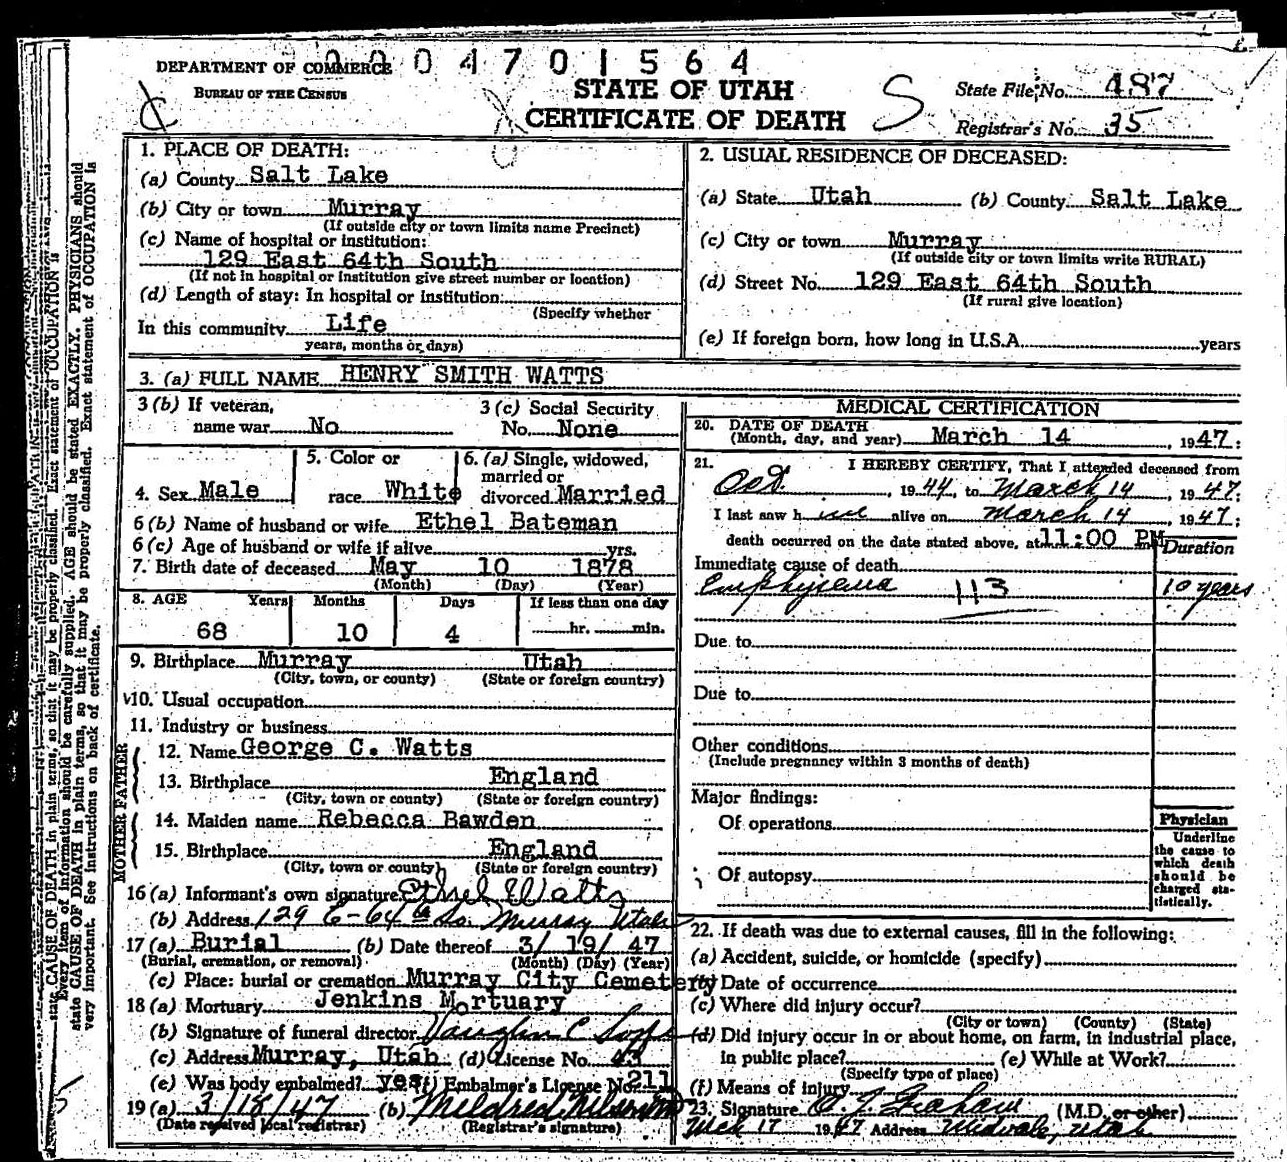 0004701564
DEPARTMENT OF COMMERCE
BUREAU OF THE CENSUS
STATE OF UTAH
CERTIFICATE OF DEATH
S
State File No. 487
Registrar's No. 35
1. PLACE OF DEATH:
(a) County Salt Lake
(b) City or town Murray
(If outside city or town limits name Precinct)
(c) Name of hospital or institution:
129 East 64th South
(If not in hospital or institution give street number or location)
(d) Length of stay: In hospital or institution:
(Specify whether
In this community Life
years, months or days)
2. USUAL RESIDENCE OF DECEASED:
(a) State Utah (b) County Salt Lake
(c) City or town Murray
(If outside city or town limits write RURAL)
(d) Street No. 129 East 64th South
(If rural give location)
(e) If foreign born, how long in U.S.A. years
3. (a) FULL NAME HENRY SMITH WATTS
3 (b) If veteran,
name war No
3 (c) Social Security
No. None
4. Sex Male
5. Color or
race White
6. (a) Single, widowed,
married or
divorced Married
6 (b) Name of husband or wife Ethel Bateman
6 (c) Age of husband or wife if alive yrs.
7. Birth date of deceased May 10 1878
(Month) (Day) (Year)
8. AGE Years Months Days If less than one day
68 10 4 hr. min.
9. Birthplace Murray Utah
(City, town, or county) (State or foreign country)
v10. Usual occupation
11. Industry or business
FATHER
12. Name George C. Watts
13. Birthplace England
(City, town or county) (State or foreign country)
MOTHER
14. Maiden name Rebecca Bawden
15. Birthplace England
(City, town or county) (State or foreign country)
16 (a) Informant's own signature Ethel Watts
(b) Address 129 E-64th So. Murray Utah
17 (a) Burial (b) Date thereof 3/ 19/ 47
(Burial, cremation, or removal) (Month) (Day) (Year)
(c) Place: burial or cremation Murray City Cemetery
18 (a) Mortuary Jenkins Mortuary
(b) Signature of funeral director Vaughn C
(c) Address Murray, Utah (d) License No. 43
(e) Was body embalmed? yes (f) Embalmer's License No. 211
19 (a) 3/18/47 (b) Mildred
(Date received local registrar) (Registrar's signature)
MEDICAL CERTIFICATION
20. DATE OF DEATH
(Month, day, and year) March 14, 1947:
21. I HEREBY CERTIFY, That I attended deceased from
Oct., 1944, to March 14, 1947;
I last saw him alive on March 14, 1947;
death occurred on the date stated above, at 11:00 PM
Duration
Immediate cause of death
Emphysema 113 10 years
Due to
Due to
Other conditions
(Include pregnancy within 3 months of death)
Major findings:
Of operations
Of autopsy
Physician
Underline
the cause to
which death
should be
charged sta-
tistically.
22. If death was due to external causes, fill in the following:
(a) Accident, suicide, or homicide (specify)
(b) Date of occurrence
(c) Where did injury occur?
(City or town) (County) (State)
(d) Did injury occur in or about home, on farm, in industrial place,
in public place? (e) While at Work?
(Specify type of place)
(f) Means of injury
23. Signature Graham (M.D. or other)
Mch 17 1947 Address Midvale, Utah
Every item of information should be carefully supplied. AGE should be stated EXACTLY. PHYSICIANS should
state CAUSE OF DEATH in plain terms, so that it may be properly classified. Exact statement of OCCUPATION is
very important. See instructions on back of certificate.